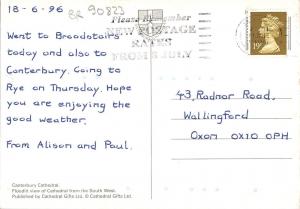 18-6-96
BR 90823
Please Remember
NEW POSTAGE
RATES
FROM 8 JULY
19P
Went to Broadstairs
today and also to
Canterbury. Going to
Rye on Thursday. Hope
you are enjoying the
good weather.
From Alison and Paul.
43, Radnor Road,
Wallingford
Oxon OX10 0PH
Canterbury Cathedral.
Floodlit view of Cathedral from the South West.
Published by Cathedral Gifts Ltd. © Cathedral Gifts Ltd.